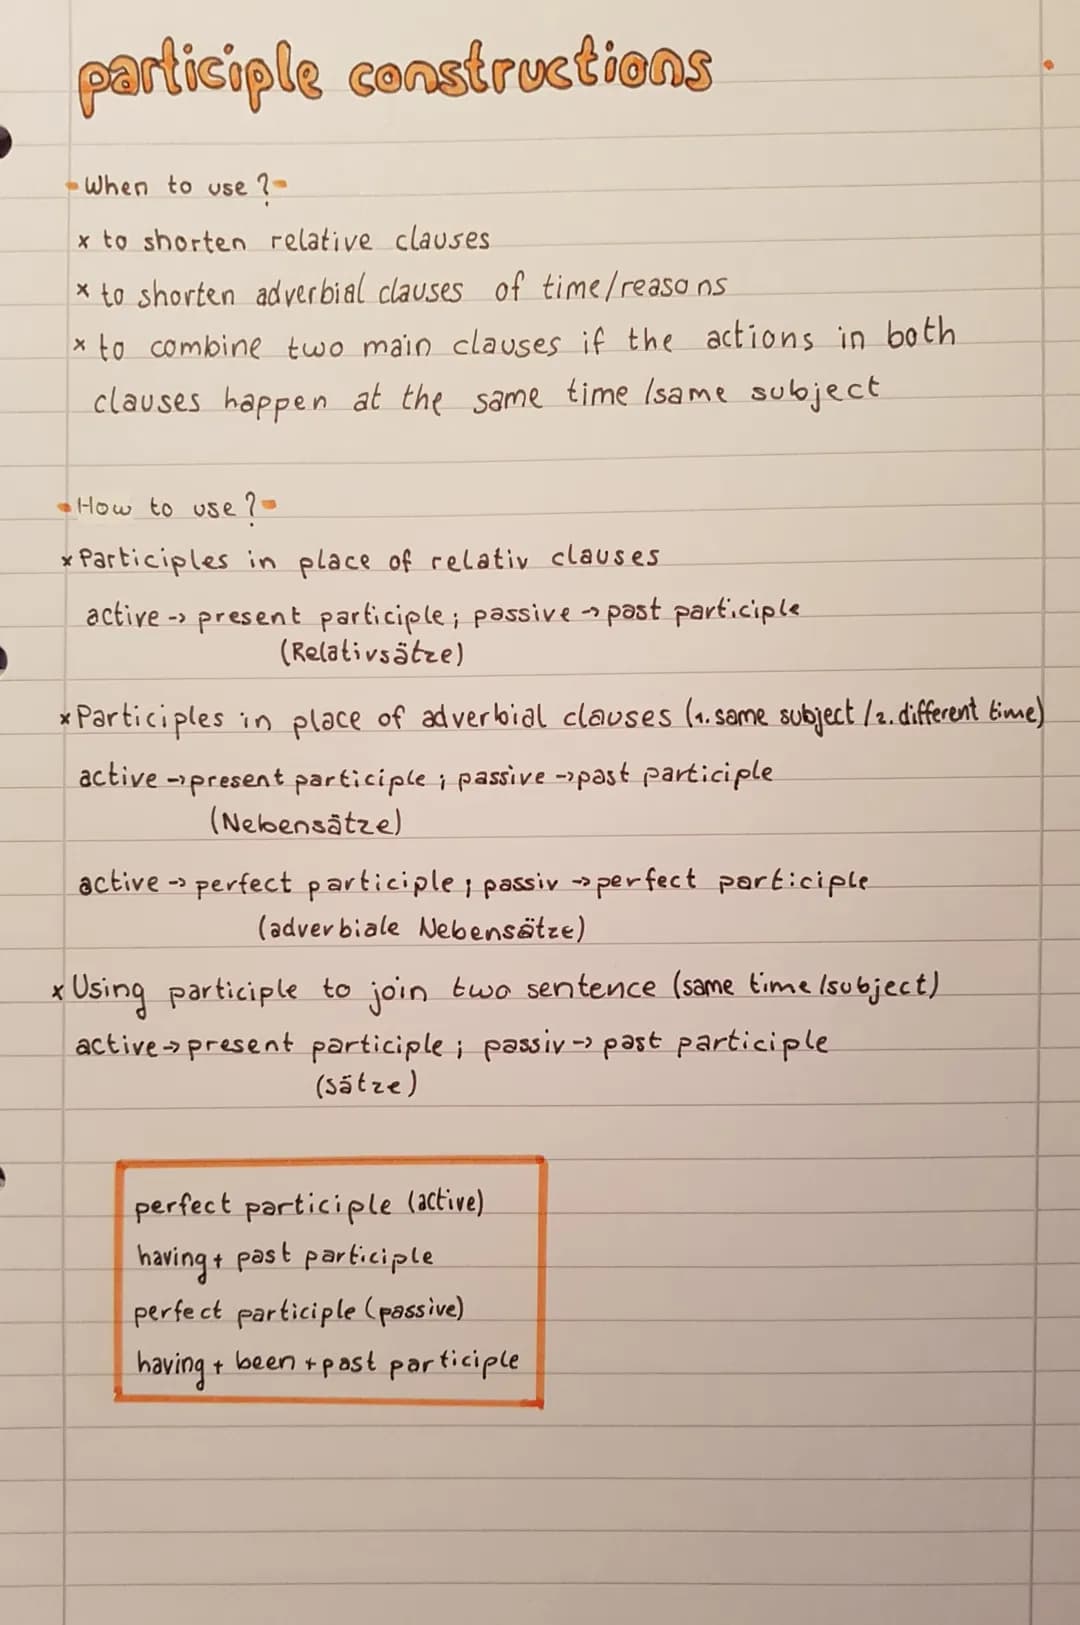 participle constructions
- When to use ? -
x to shorten relative clauses
x to shorten adverbial clauses of time/reasons
x to combine two main clauses if the actions in both
clauses happen at the same time /same subject
- How to use ? -
x Participles in place of relativ clauses
active -> present participle ; passive -> past participle
(Relativsätze)
x Participles in place of adverbial clauses (1. same subject / 2. different time)
active -> present participle ; passive -> past participle
(Nebensätze)
active -> perfect participle ; passiv -> perfect participle
(adverbiale Nebensätze)
x Using participle to join two sentence (same time /subject)
active -> present participle ; passiv -> past participle
(sätze)
perfect participle (active)
having + past participle
perfect participle (passive)
having + been + past participle